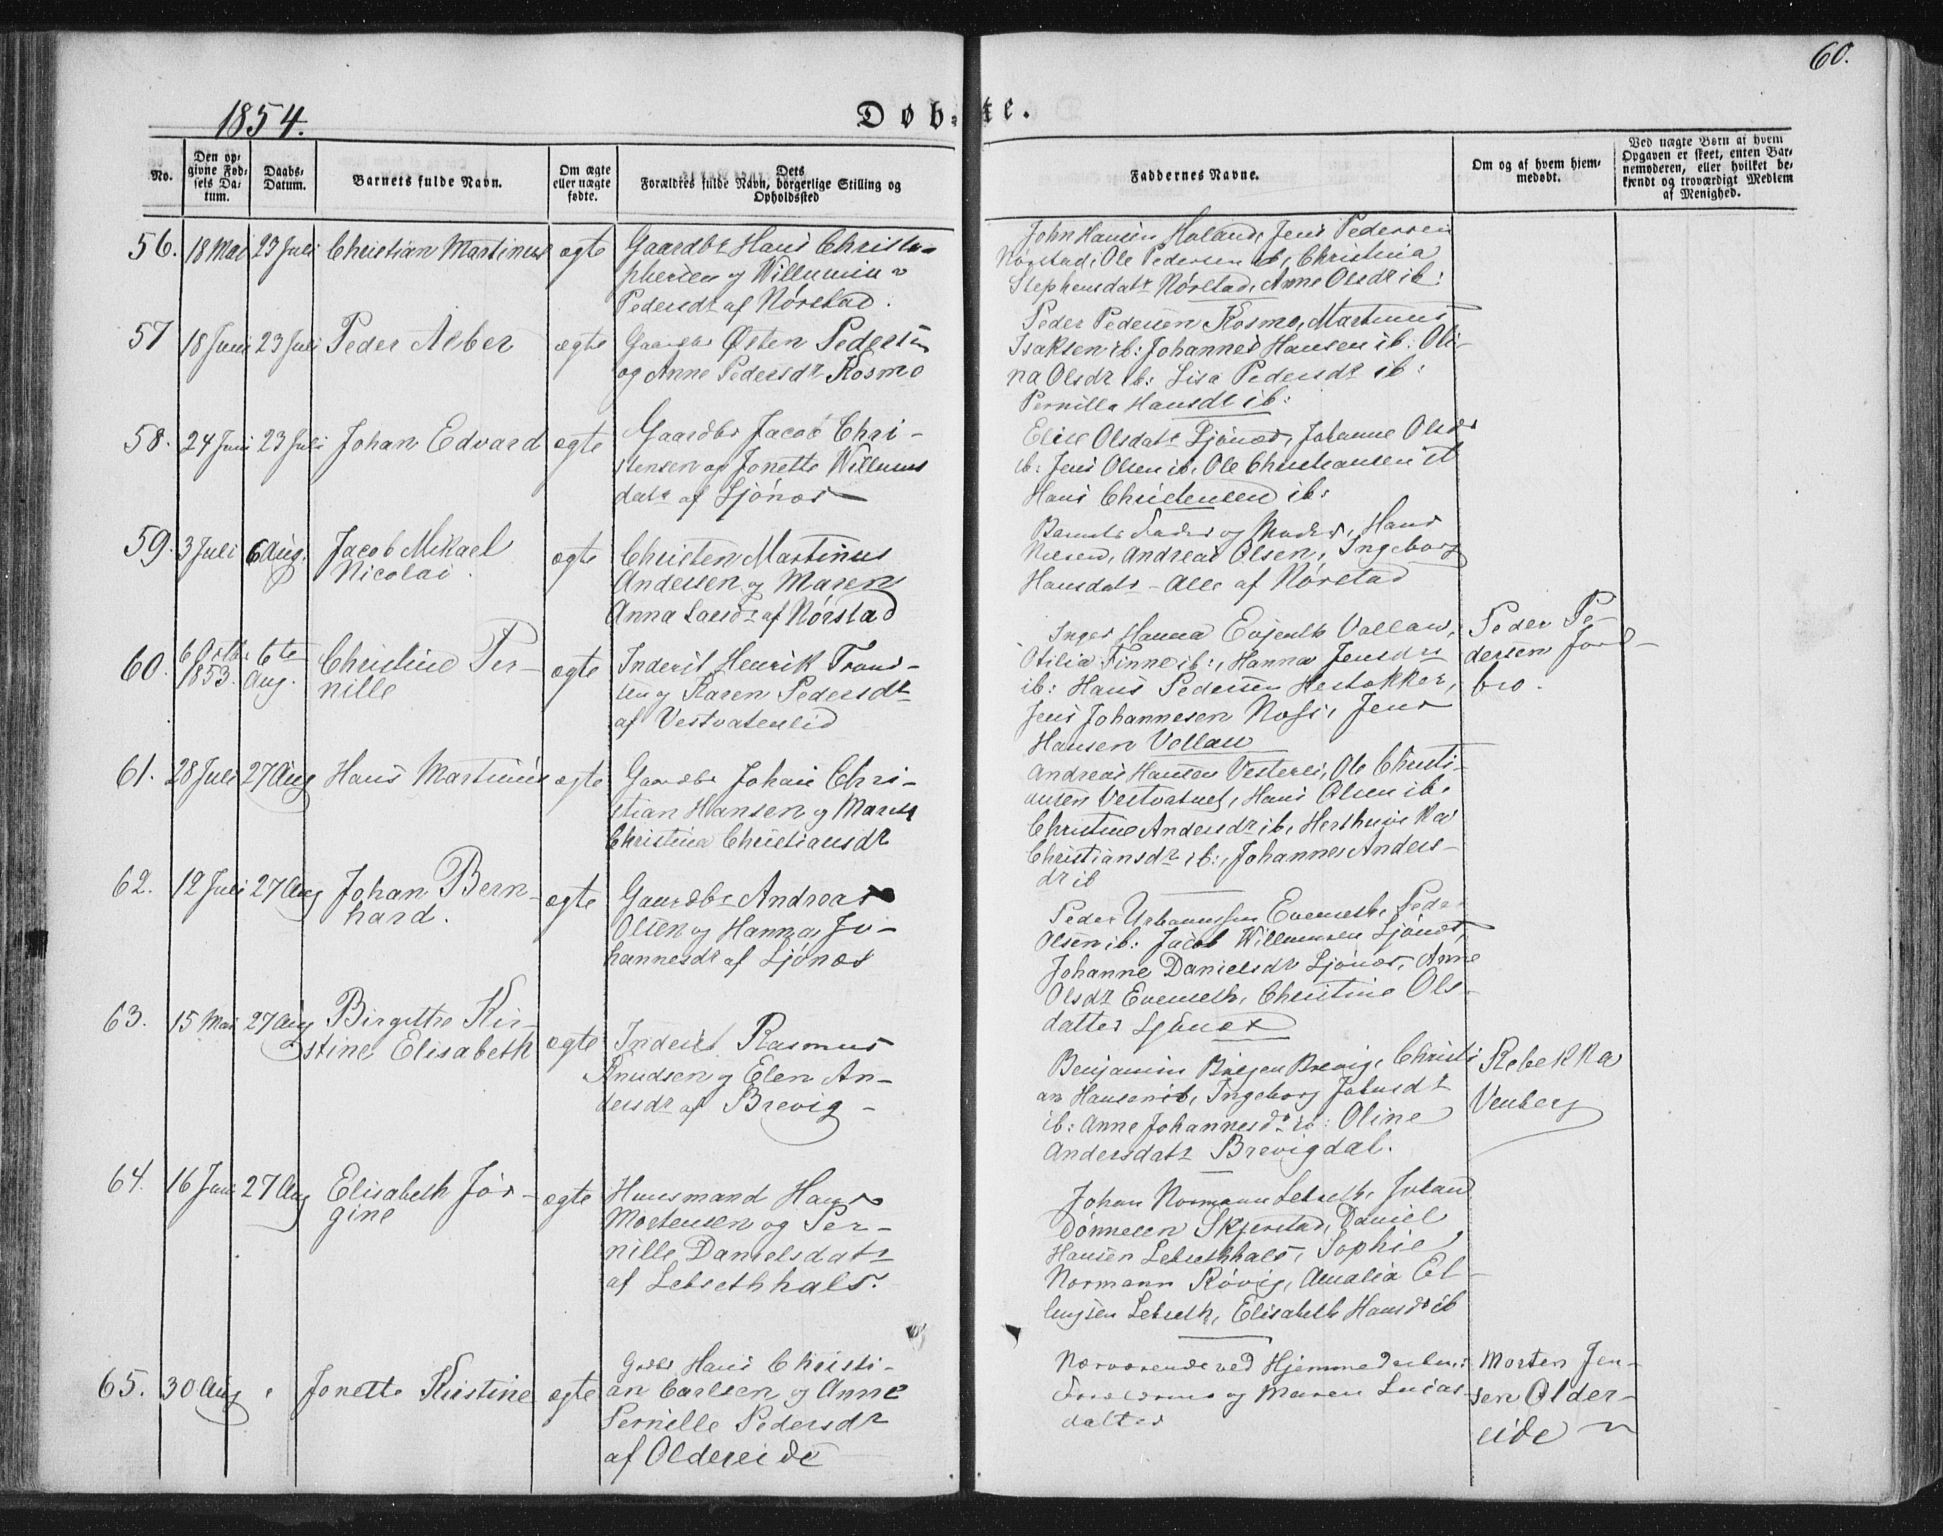 60.
1854.
Døb- te.
No.
Den op-
givne Fød-
sels Da-
tum.
Daabs-
Datum.
Barnets fulde Navn.
Om ægte
eller uægte
fødte.
Dets
Forældres fulde Navn, borgerlige Stilling og
Opholdssted
Faddernes Navne.
Om og af hvem hjem-
medøbt.
Ved uægte Børn af hvem
Opgaven er skeet, enten Bar-
nemoderen, eller hvilket be-
kjendt og troværdigt Medlem
af Menighed.
56. 18 Mai 23 Juli Christian Martinus ægte
Gaardbr Hans Christo-
phersen og Willumine
Pedersdr af Nørstad.
John Hansen Høland, Jens Pedersen
Nørstad, Ole Pedersen ib, Christina
Stephensdatr Nørstad, Anne Olsdr ib:
57 18 Juni 23 Juli Peder Alber ægte
Gaardbr Østen Pedersen
og Anne Pedersdr Kosmo
Peder Pedersen Kosmo, Martinus
Isaksen ib: Johannes Hansen ib: Oli-
na Olsdr ib: Lisa Pedersdr ib:
Pernilla Hansdr ib:
58. 24 Juni 23 Juli Johan Edvard ægte
Gaardbr Jacob Chri-
stensen og Jonette Willums
datr af Ljønæs
Elise Olsdatr Ljønæs, Johanne Olsdr
ib: Jens Olsen ib, Ole Christiansen ib
Hans Christensen ib:
59. 3 Juli 6 Aug. Jacob Mikael
Nicolai. ægte
Christen Martinus
Andersen og Maren
Anna Larsdr af Nørstad
Barnets Fader og Moder, Hans
Nilsen, Andreas Olsen, Ingeborg
Hansdatr - alle af Nørstad
60. 6 Octbr
1853. 6te
Aug. Christine Per-
nille ægte
Inderst Henrik Fran-
sen og Karen Pedersdr
af Vestvatenlid
Inger Hanna Evjenth Vollan,
Otilia Finne ib:, Hanna Jensdr
ib: Hans Pedersen
Jens Johannesen Jens
Hansen Vollan
Peder Pe-
dersen
bro.
61. 28 Juli 27 Aug Hans Martinus ægte
Gaardbr Johan Chri-
stian Hansen og Maren
Christina Christiansdr
Andreas Hansen Vesterli, Ole Christi-
ansen Vestvatnet, Hans Olsen ib.
Christine Andersdr ib,
Christiansdr ib:, Johanne Anders-
dr ib
62. 12 Juli 27 Aug Johan Bern-
hard. ægte
Gaardbr Andreas
Olsen og Hanna Jo-
hannesdr af Ljønæs
Peder Urbanussen Evenseth, Peder
Olsen ib: Jacob Willumsen Ljønæs,
Johanne Danielsdr Ljønæs, Anne
Olsdr Evenseth, Christine Ols-
datter Ljønæs
63. 15 Mai 27 Aug Birgitte Kir-
stine Elisabeth ægte
Inderst Rasmus
Knudsen og Elen An-
dersdr af Brevig -
Benjamin Brevig, Christi
an Hansen ib, Ingeborg
ib: Anne Johannesdr ib: Oline
Andersdatr Brevigdal.
Rebekka
Venberg
64. 16 Juni 27 Aug Elisabeth Jør-
gine ægte
Huusmand Hans
Mortensen og Per-
nille Danielsdatr
af Letsethhals.
Johan Normann Letseth,
Dønnesen Skjerstad, Daniel
Hansen Letsethhals, Sophie
Normann Røvig, Amalia El-
lingsen Letseth, Elisabeth Hansdr ib
65. 30 Aug Jonette Kirstine ægte
Grdbr Hans Christi-
an Carlsen og Anne
Pernille Pedersdr
af Oldereide
Nærværende ved Hjemmedaaben:
Forældrene og Maren Lucas-
datter
Morten Jen-
sen Older-
eide